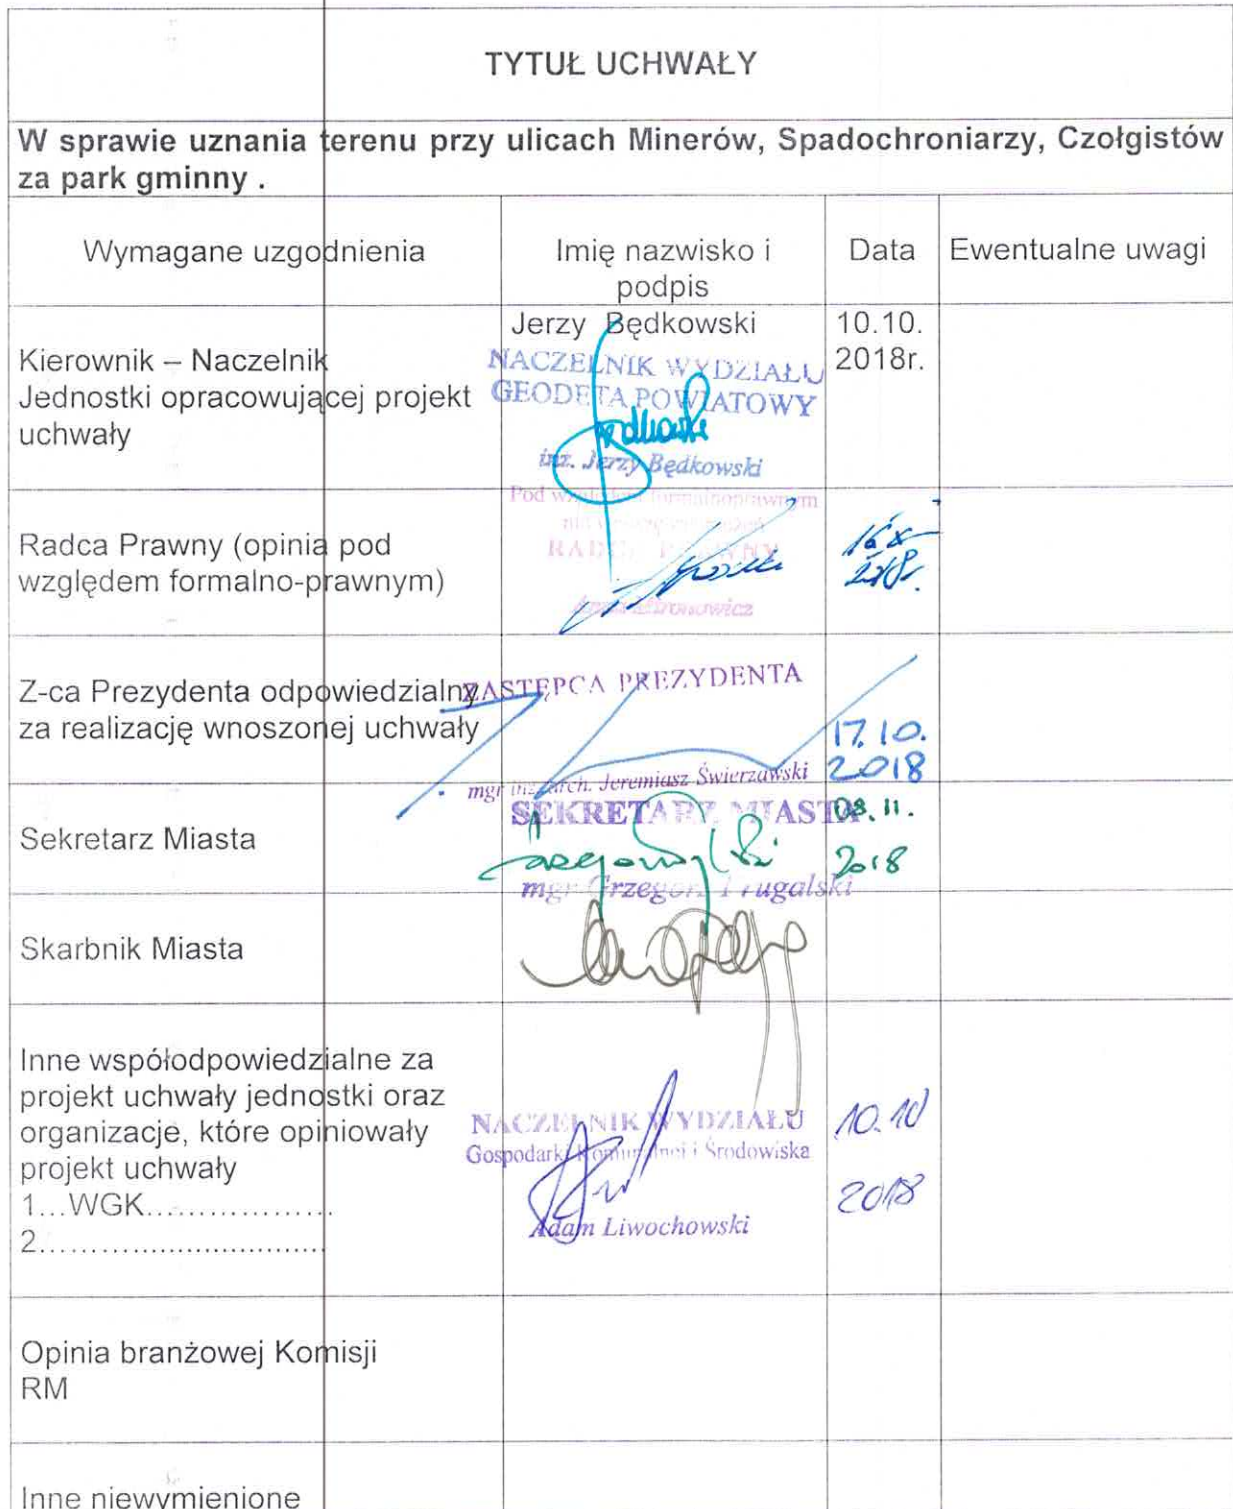 TYTUŁ UCHWAŁY
W sprawie uznania terenu przy ulicach Minerów, Spadochroniarzy, Czołgistów
za park gminny .
Wymagane uzgodnienia
Imię nazwisko i
podpis
Data
Ewentualne uwagi
Kierownik – Naczelnik
Jednostki opracowującej projekt
uchwały
Jerzy Będkowski
NACZELNIK WYDZIAŁU
GEODETA POWIATOWY
inż. Jerzy Będkowski
10.10.
2018r.
Radca Prawny (opinia pod
względem formalno-prawnym)
Pod względem formalnoprawnym
RADCA PRAWNY
16 X
2018r.
Z-ca Prezydenta odpowiedzialny
za realizację wnoszonej uchwały
ZASTĘPCA PREZYDENTA
mgr inż. arch. Jeremiasz Świerzawski
17.10.
2018
Sekretarz Miasta
SEKRETARZ MIASTA
mgr Grzegorz Frugalski
08.11.
2018
Skarbnik Miasta
Inne współodpowiedzialne za
projekt uchwały jednostki oraz
organizacje, które opiniowały
projekt uchwały
1...WGK..................
2................................
NACZELNIK WYDZIAŁU
Gospodarki Komunalnej i Środowiska
Adam Liwochowski
10.10
2018
Opinia branżowej Komisji
RM
Inne niewymienione